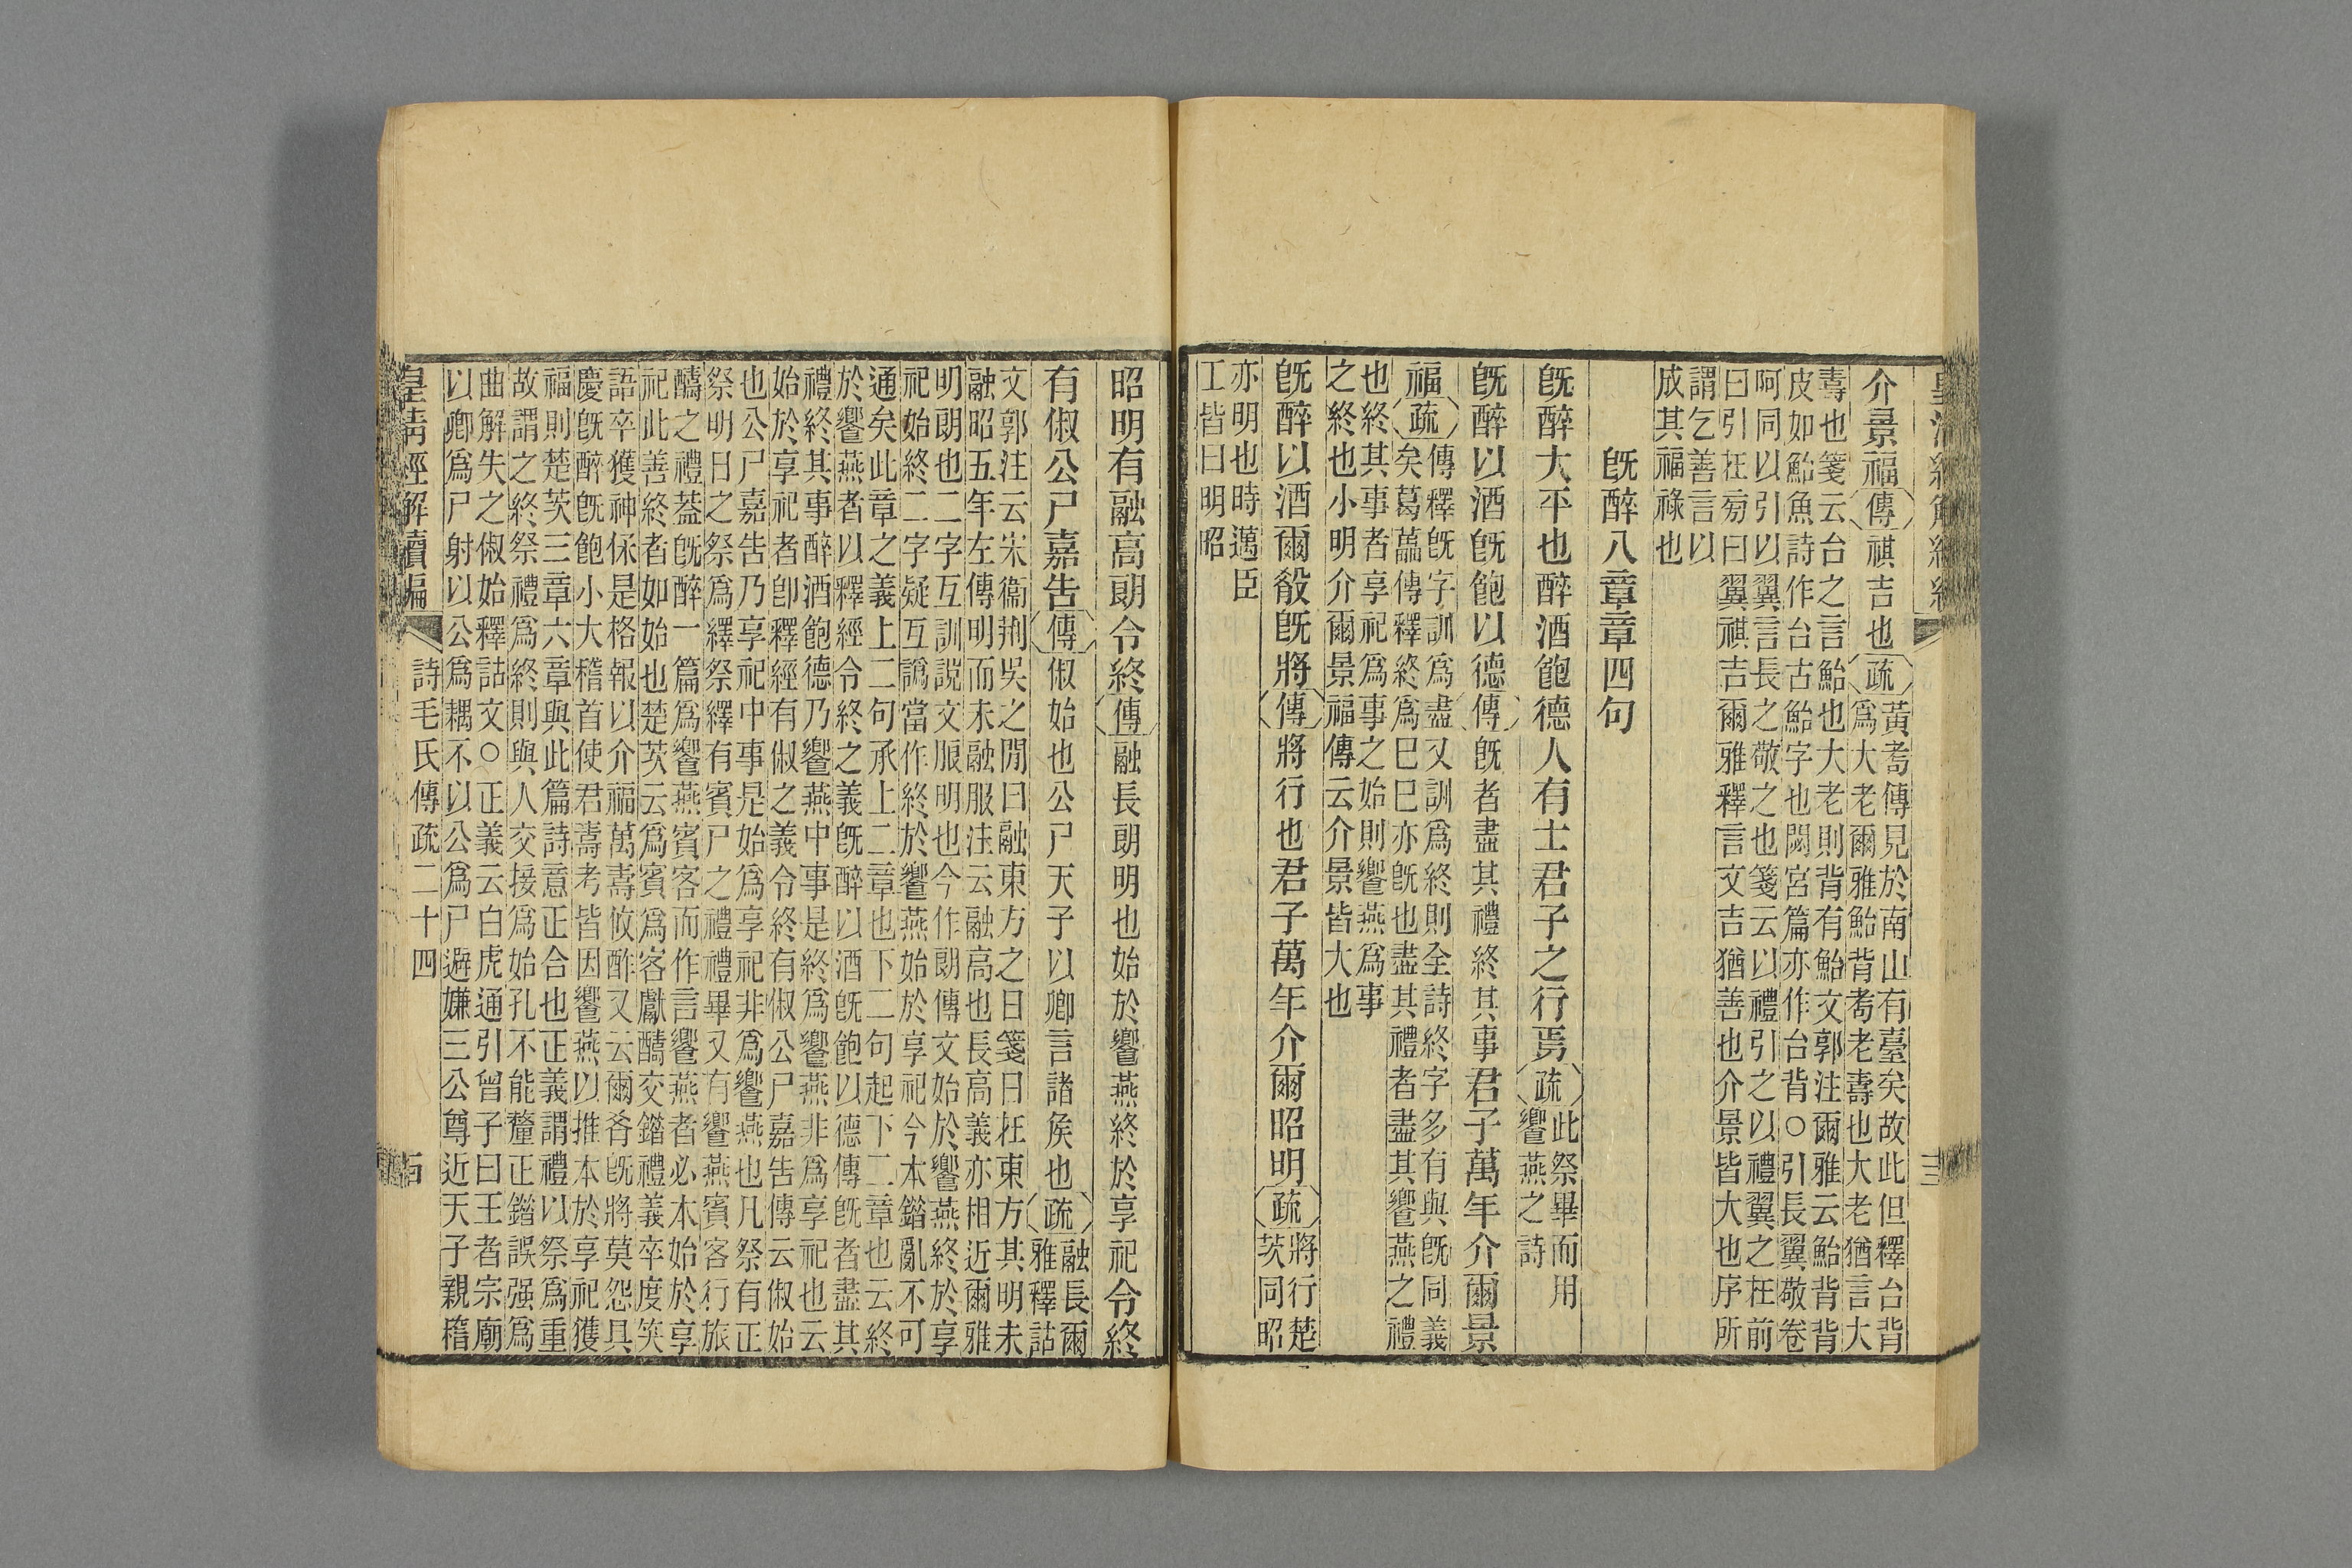 介景福傳祺吉也疏黃耉傳見於南山有臺矣故此但釋台背
爲大老爾雅鮐背耉老壽也大老猶言大
壽也箋云台之言鮐也大老則背有鮐文郭注爾雅云鮐背背
皮如鮐魚詩作台古鮐字也閟宮篇亦作台背○引長翼敬卷
阿同以引以翼言長之敬之也箋云以禮引之以禮翼之在前
曰引在旁曰翼祺吉爾雅釋言文吉猶善也介景皆大也序所
謂乞善言以
成其福祿也
既醉八章章四句
既醉大平也醉酒飽德人有士君子之行焉疏此祭畢而用
饗燕之詩
既醉以酒既飽以德傳既者盡其禮終其事君子萬年介爾景
福疏傳釋既字訓爲盡又訓爲終則全詩終字多有與既同義
矣葛藟傳釋終爲巳巳亦既也盡其禮者盡其饗燕之禮
也終其事者享祀爲事之始則饗燕爲事
之終也小明介爾景福傳云介景皆大也
既醉以酒爾殽既將傳將行也君子萬年介爾昭明疏將行楚
茨同昭
亦明也時邁臣
工皆曰明昭
昭明有融高朗令終傳融長朗明也始於饗燕終於享祀令終
有俶公尸嘉告傳俶始也公尸天子以卿言諸侯也疏融長爾
雅釋詁
文郭注云宋衞荆吳之閒曰融東方之日箋日在東方其明未
融昭五年左傳明而未融服注云融高也長高義亦相近爾雅
明朗也二字互訓說文朖明也今作朗傳文始於饗燕終於享
祀始終二字疑互譌當作終於饗燕始於享祀今本錯亂不可
通矣此章之義上二句承上二章也下二句起下二章也云終
於饗燕者以釋經令終之義既醉以酒既飽以德傳既者盡其
禮終其事醉酒飽德乃饗燕中事是終爲饗燕非爲享祀也云
始於享祀者卽釋經有俶之義令終有俶公尸嘉告傳云俶始
也公尸嘉告乃享祀中事是始爲享祀非爲饗燕也凡祭有正
祭明日之祭爲繹祭繹有賓尸之禮禮畢又有饗燕賓客行旅
醻之禮葢既醉一篇爲饗燕賓客而作言饗燕者必本始於享
祀此善終者如始也楚茨云爲賓爲客獻醻交錯禮義卒度笑
語卒獲神保是格報以介福萬壽攸酢又云爾肴既將莫怨具
慶既醉既飽小大稽首使君壽考皆因饗燕以推本於享祀獲
福則楚茨三章六章與此篇詩意正合也正義謂禮以祭爲重
故謂之終祭禮爲終則與人交接爲始孔不能釐正錯誤强爲
曲解失之俶始釋詁文○正義云白虎通引曾子曰王者宗廟
以卿爲尸射以公爲耦不以公爲尸避嫌三公尊近天子親稽
皇淸經解續編 詩毛氏傳疏二十四